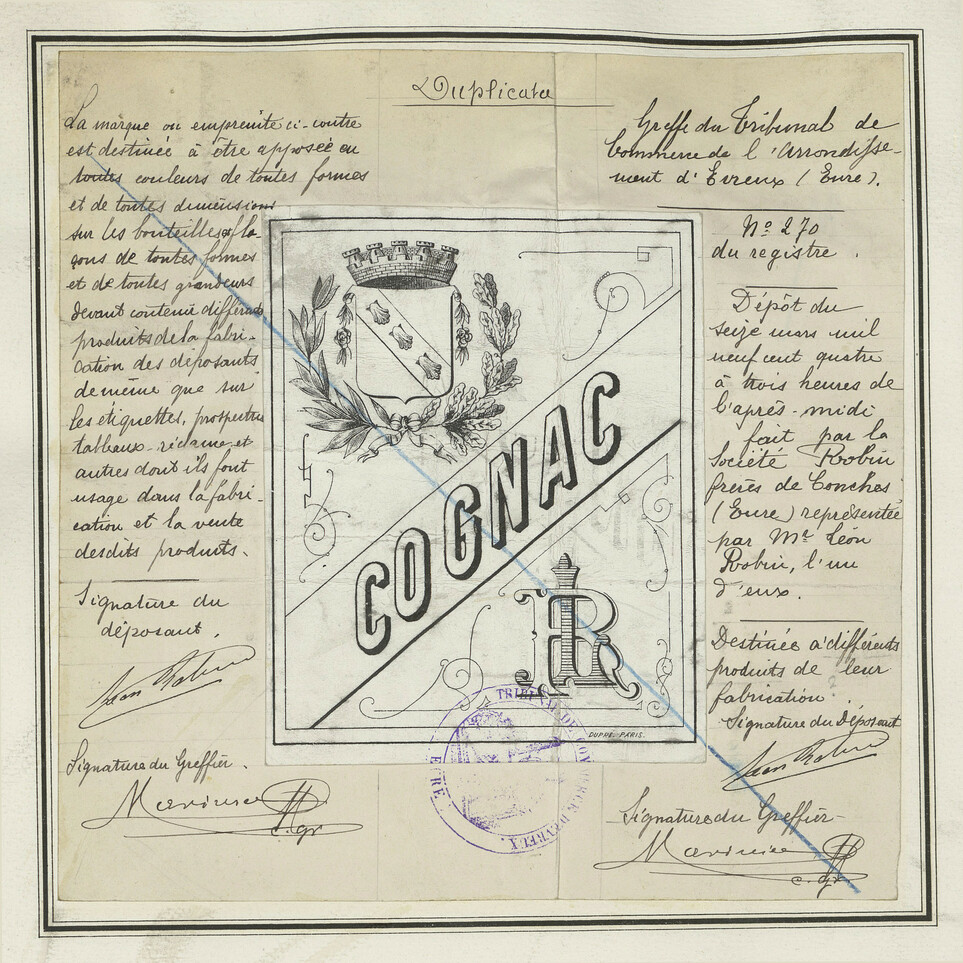 Duplicata
La marque ou empreinte ci-contre
est destinée à être apposée en
toutes couleurs de toutes formes
et de toutes dimensions
sur les bouteilles, fla
çons de toutes formes
et de toutes grandeurs
devant contenir différents
produits de la fabri-
cation des déposants
de même que sur
les étiquettes, prospectus
tableaux-réclame et
autres dont ils font
usage dans la fabri-
cation et la vente
desdits produits.
Signature du
déposant.
Signature du Greffier.
c. gr
COGNAC
DUPRE. PARIS.
TRIBUNAL DE COMMERCE D'EVREUX.
EURE
Greffe du Tribunal de
Commerce de l'Arrondisse-
ment d'Evreux (Eure).
Nº 270
du registre.
Dépôt du
seize mars mil
neuf cent quatre
à trois heures de
l'après-midi
fait par la
Société Robin
frères de Conches
(Eure) représentée
par Mr Léon
Robin, l'un
d'eux.
Destinée à différents
produits de leur
fabrication.
Signature du Déposant
Signature du Greffier
c. gr